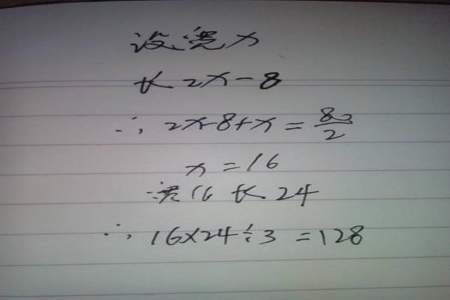 设宽x
长2x-8
∴ 2x-8+x=80/2
x=16
宽16 长24
∴ 16×24÷3=128